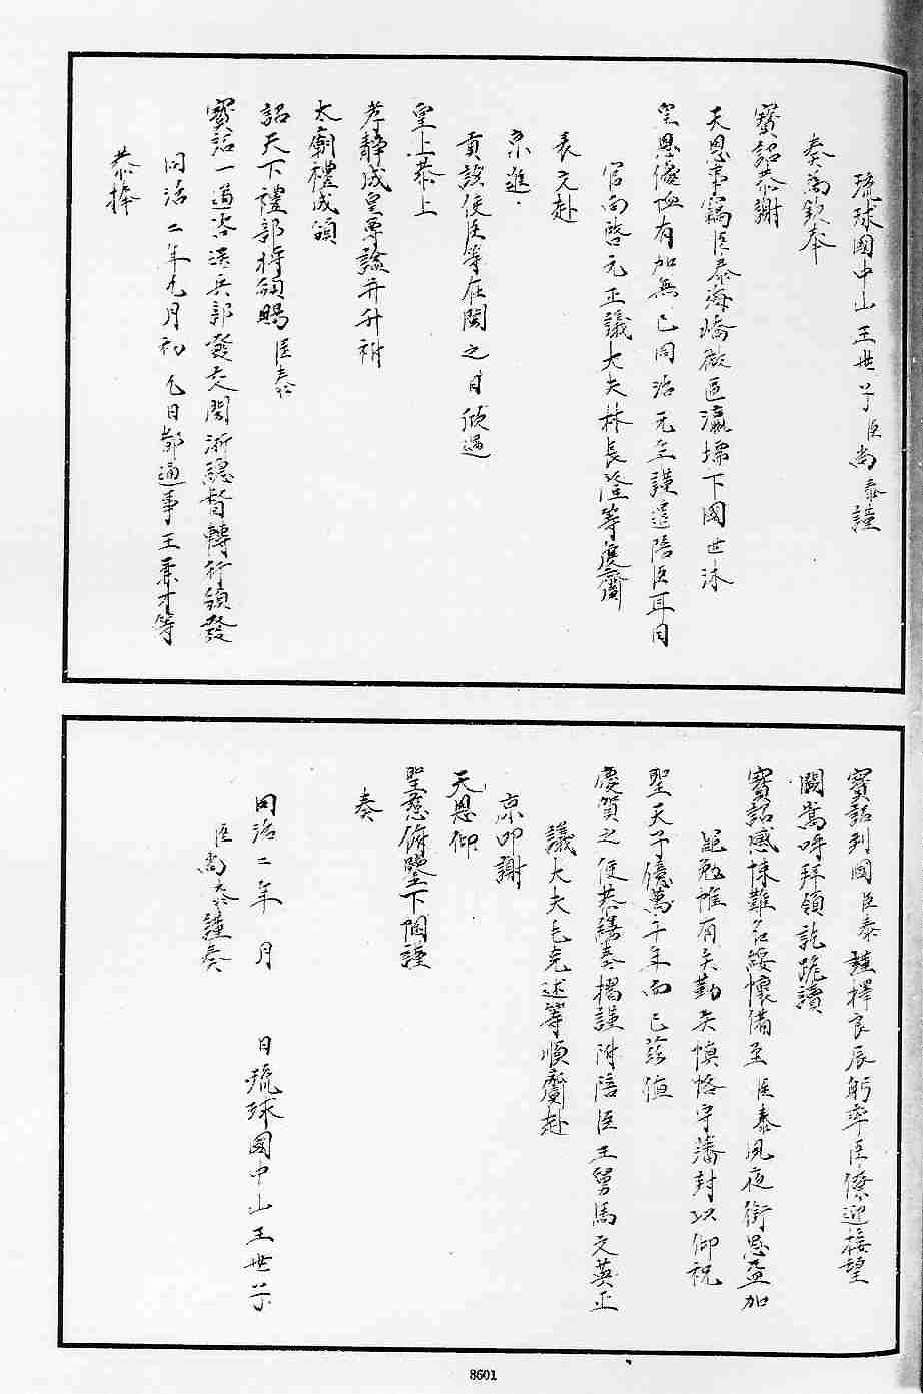 琉球國中山王世子臣尚泰謹
奏為欽奉
寶詔恭謝
天恩事竊臣泰海嶠微區瀛壖下國世沐
皇恩優渥有加無已同治元年謹遣陪臣耳目
官向啓元正議大夫林長隆等虔齎
表文赴
京進
貢該使臣等在閩之日欣遇
皇上恭上
孝靜成皇后尊諡並升祔
太廟禮成頒
詔天下禮部將頒賜臣泰
寶詔一道咨送兵部發交閩浙總督轉行頒發
同治二年九月初九日都通事王秉才等
恭捧
寶詔到國臣泰謹擇良辰躬率臣僚迎接望
闕嵩呼拜領訖跪讀
寶詔感悚難名綏懷備至臣泰夙夜銜恩益加
黽勉惟有矢勤矢慎恪守藩封以仰祝
聖天子億萬千年而已茲值
慶賀之便恭繕奏摺謹附陪臣王舅馬文英正
議大夫毛克述等順齎赴
京叩謝
天恩仰
聖慈俯鑒下悃謹
奏
同治二年 月 日琉球國中山王世子
臣尚泰謹奏
8601